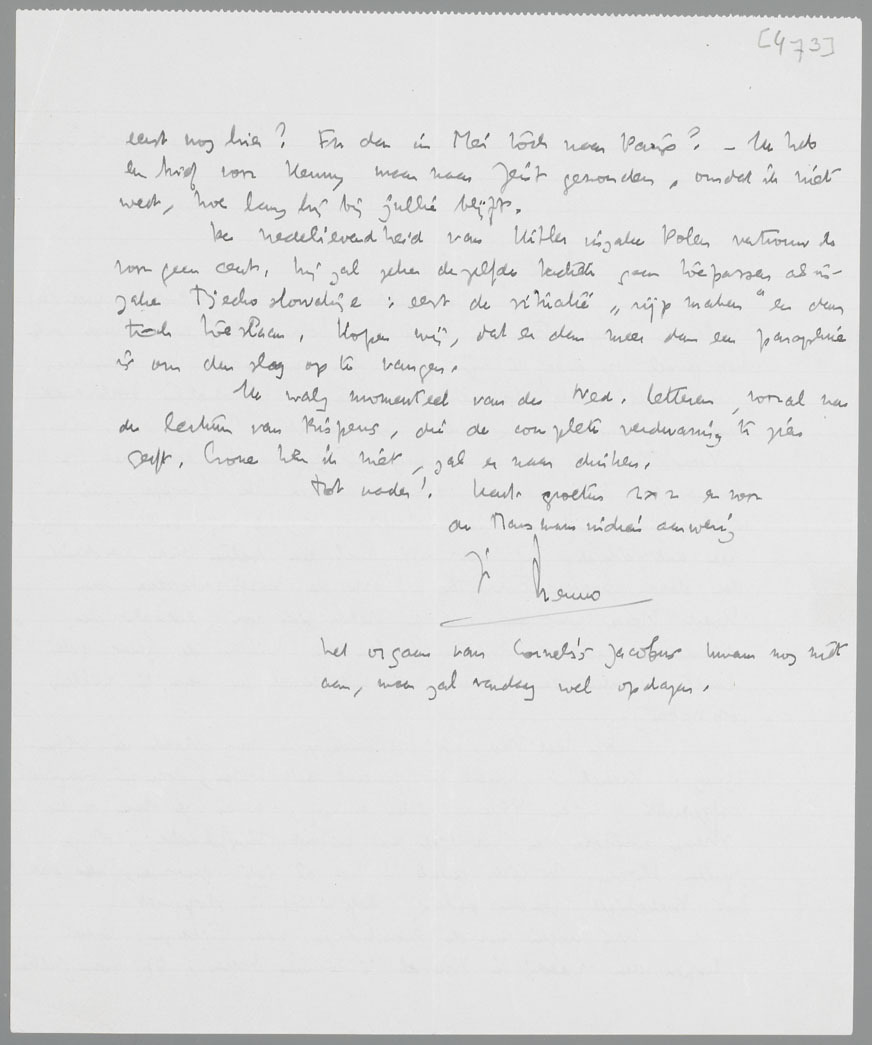 [473]
eerst nog hier? En dan in Mei tòch naar Parijs? – Ik heb
een brief voor Henny maar naar Jeut gezonden, omdat ik niet
weet, hoe lang hij bij jullie blijft.
De vredelievendheid van Hitler inzake Polen vertrouw ik
voor geen cent, hij zal zeker dezelfde tactiek gaan toepassen als in-
zake Tjechoslowakije: eerst de situatie „rijp maken" en dan
toch toeslaan. Hopen wij, dat er dan meer dan een parapluie
is om den slag op te vangen.
Ik walg momenteel van de Ned. letteren, vooral na
de lectuur van Knipens, die de complete verdwazing te zien
geeft. Crone ken ik niet, zal er naar duiken.
Tot nader! Hart. groeten 2 x 2 en voor
de Marsmans indien aanwezig
je Menno
Het orgaan van Cornelis Jacobus kwam nog niet
aan, maar zal vandaag wel opdagen.